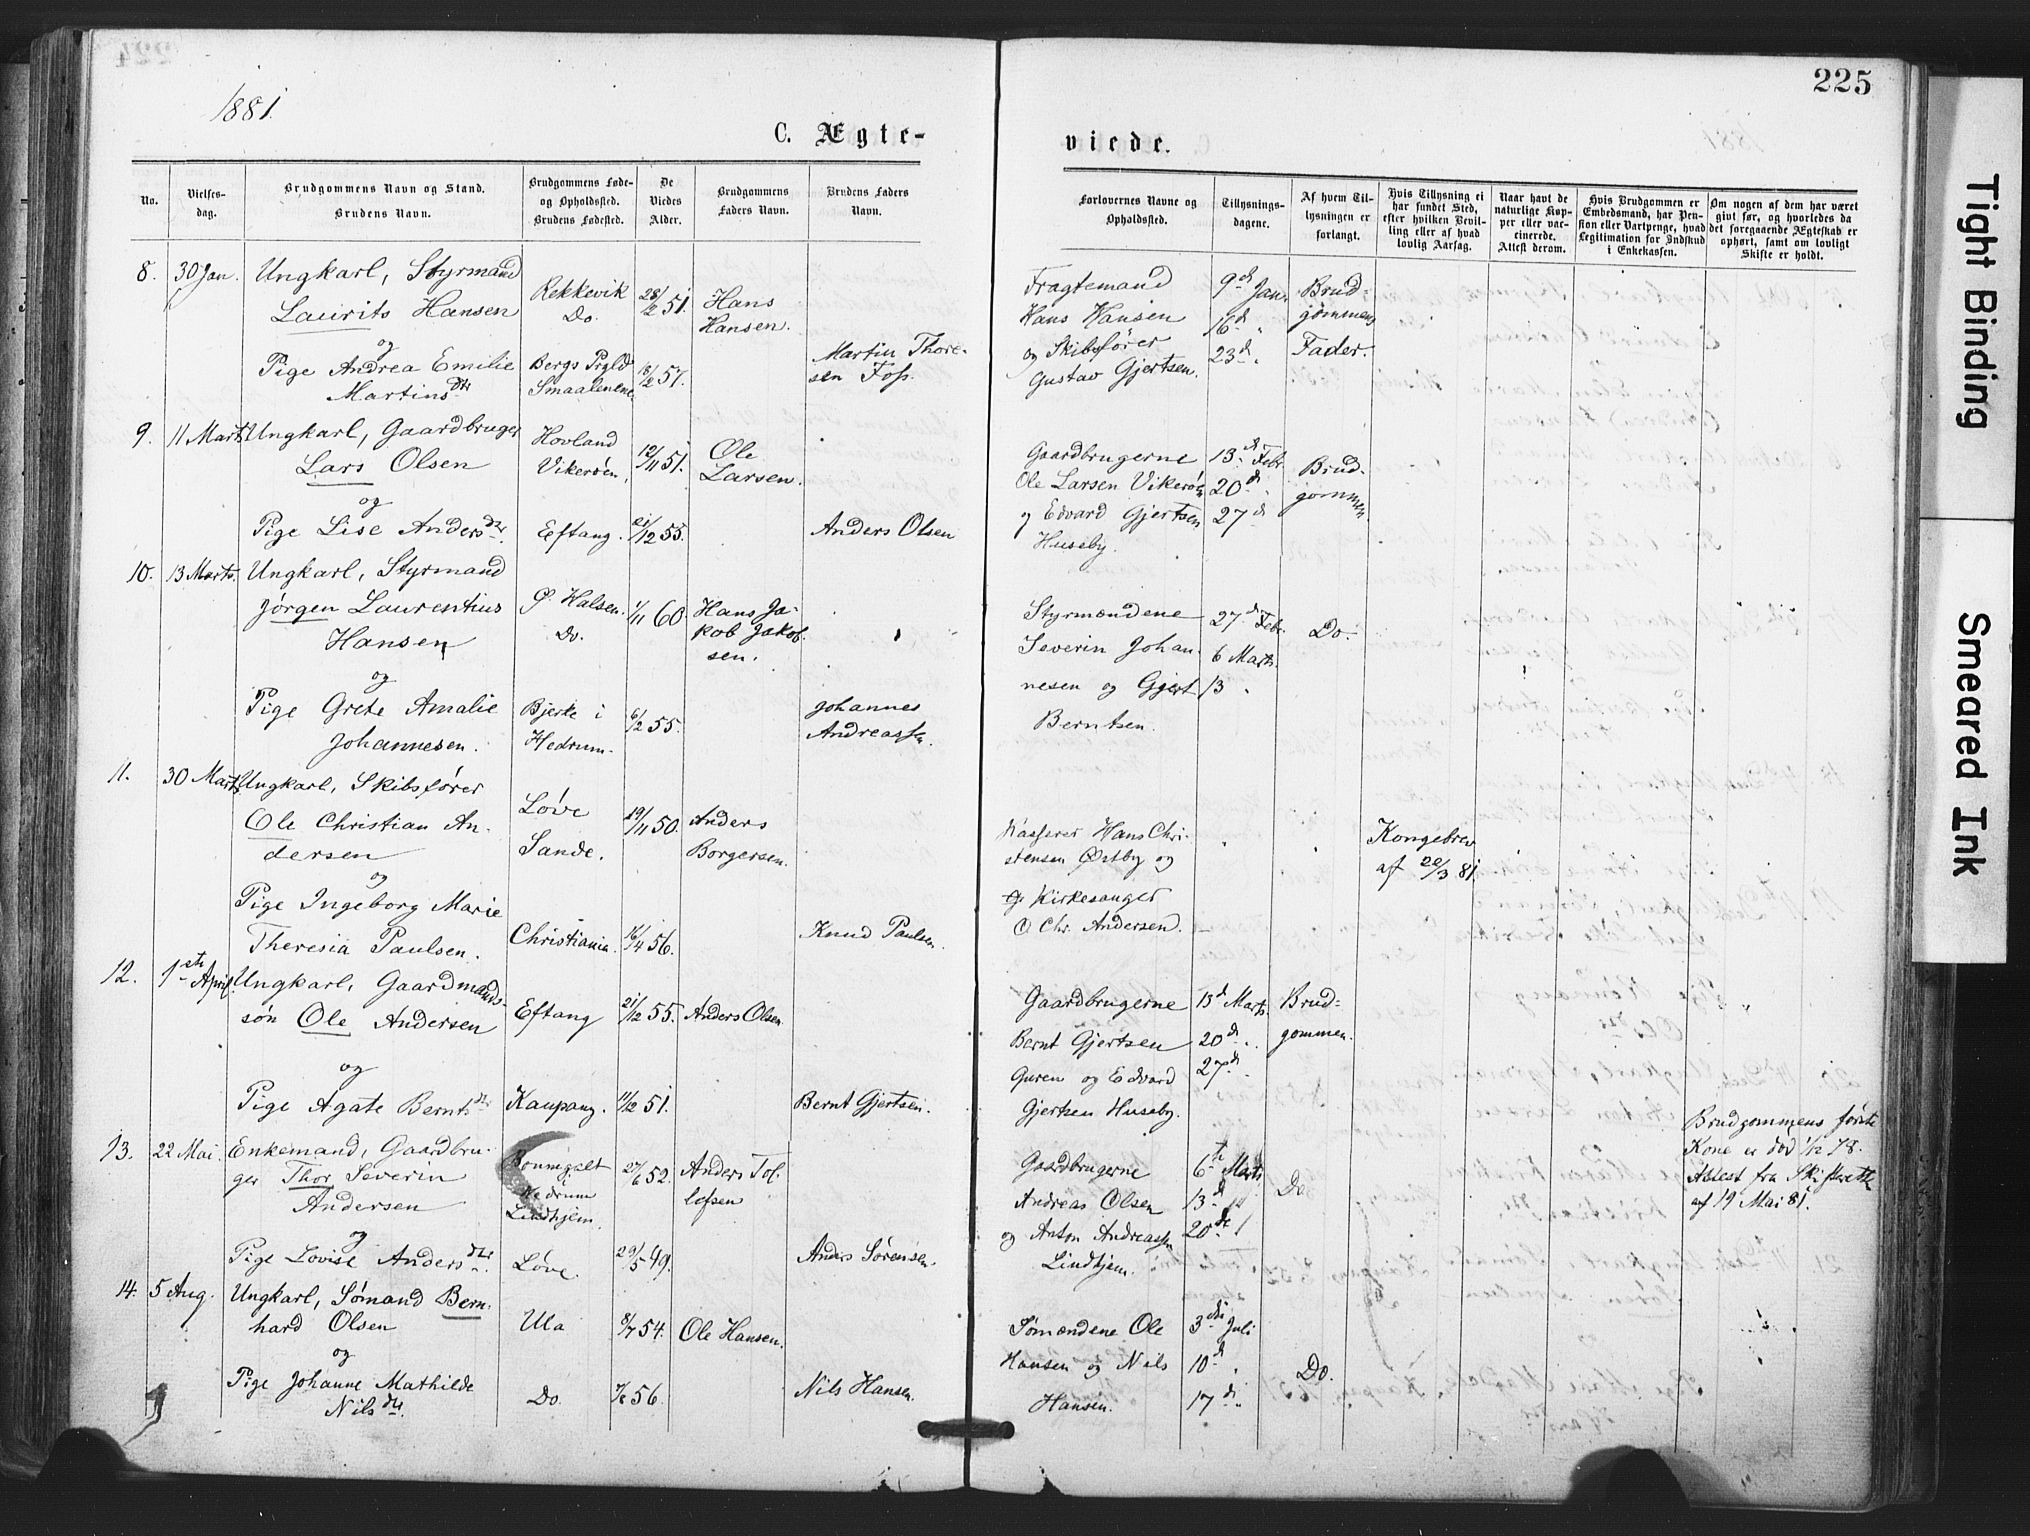 225
1881.
C. Ægte-
viede.
No.
Vielses-
dag.
Brudgommens Navn og Stand.
Brudens Navn.
Brudgommens Føde-
og Opholdssted.
Brudens Fødested.
De
Viedes
Alder.
Brudgommens
Faders Navn.
Brudens Faders
Navn.
Forlovernes Navne og
Opholdssted.
Tillysnings-
dagene.
Af hvem Til-
lysningen er
forlangt.
Hvis Tillysning ei
har fundet Sted,
efter hvilken Bevil-
ling eller af hvad
lovlig Aarsag.
Naar havt de
naturlige Kop-
per eller vac-
cinerede.
Attest derom.
Hvis Brudgommen er
Embedsmand, har Pen-
sion eller Vartpenge, hvad
Legitimation for Indskud
i Enkekassen.
Om nogen af dem har været
gift før, og hvorledes da
det foregaaende Ægteskab er
ophørt, samt om lovligt
Skifte er holdt.
8. 30 Jan. Ungkarl, Styrmand
Laurits Hansen
Rekkevik
Do.
28/2 51.
Hans
Hansen.
og
Pige Andrea Emilie
Martinsdtr
Bergs Prgld
Smaalenene.
18/2 57.
Martin Thore-
sen Foss.
Fragtemand
Hans Hansen
og Skibsfører
Gustav Gjertsen.
9de Jan.
16d "
23d "
Brud-
gommens
Fader.
9. 11 Marts Ungkarl, Gaardbruger
Lars Olsen
Hovland
Vikerøen.
12/11 51.
Ole
Larsen.
og
Pige Lise Andersdtr.
Eftang.
21/12 55.
Anders Olsen
Gaardbrugerne
Ole Larsen Vikerøen
og Edvard Gjertsen
Huseby.
13d Febr.
20d "
27d
Brud-
gommen.
10. 13 Marts. Ungkarl, Styrmand
Jørgen Laurentius
Hansen
Halsen.
Do.
1/11 60
Hans Ja-
kob Jakob-
sen.
og
Pige Grete Amalie
Johannesen.
Bjerke i
Hedrum.
6/2 55.
Johannes
Andreassen.
Styrmændene
Severin Johan-
nesen og Gjert
Berntsen.
27d Febr.
6 Marts.
13 "
Do.
11. 30 Marts Ungkarl, Skibsfører
Ole Christian An-
dersen
Løve
Sande.
19/11 50.
Anders
Borgersen.
og
Pige Ingeborg Marie
Theresia Paulsen.
Christiania.
16/4 56.
Knud Paulsen.
Kasserer Hans Chri-
stensen Østby og
Kirkesanger
O Chr. Andersen.
Kongebrev
af 20/3 81.
12. 1ste April. Ungkarl, Gaardmands-
søn Ole Andersen
Eftang
21/12 55.
Anders Olsen
og
Pige Agate Berntsdtr
Kaupang.
11/12 51.
Bernt Gjertsen.
Gaardbrugerne
Bernt Gjertsen
Guren og Edvard
Gjertsen Huseby.
13d Marts.
20d "
27d "
Brud-
gommen.
13. 22 Mai. Enkemand, Gaardbru-
ger Thor Severin
Andersen
i
Hedrum
Lindhjem.
27/6 52.
Anders Tol-
lofsen
og
Pige Lovise Andersdtr.
Løve.
29/5 49.
Anders Sørensen.
Gaardbrugerne
Andreas Olsen
og Anton Andreassen
Lindhjem.
6te Marts
13d "
20de "
Do.
Brudgommens første
Kone er død 1/12 78.
Attest fra Skifteretten
af 19 Mai 81.
14. 5 Aug. Ungkarl, Sømand Bern-
hard Olsen
Ula
8/7 54.
Ole Hansen.
og
Pige Johanne Mathilde
Nilsdtr.
Do.
56.
Nils Hansen.
Sømændene Ole
Hansen og Nils
Hansen.
3die Juli
10d "
17di "
Do.
Tight Binding
Smeared Ink